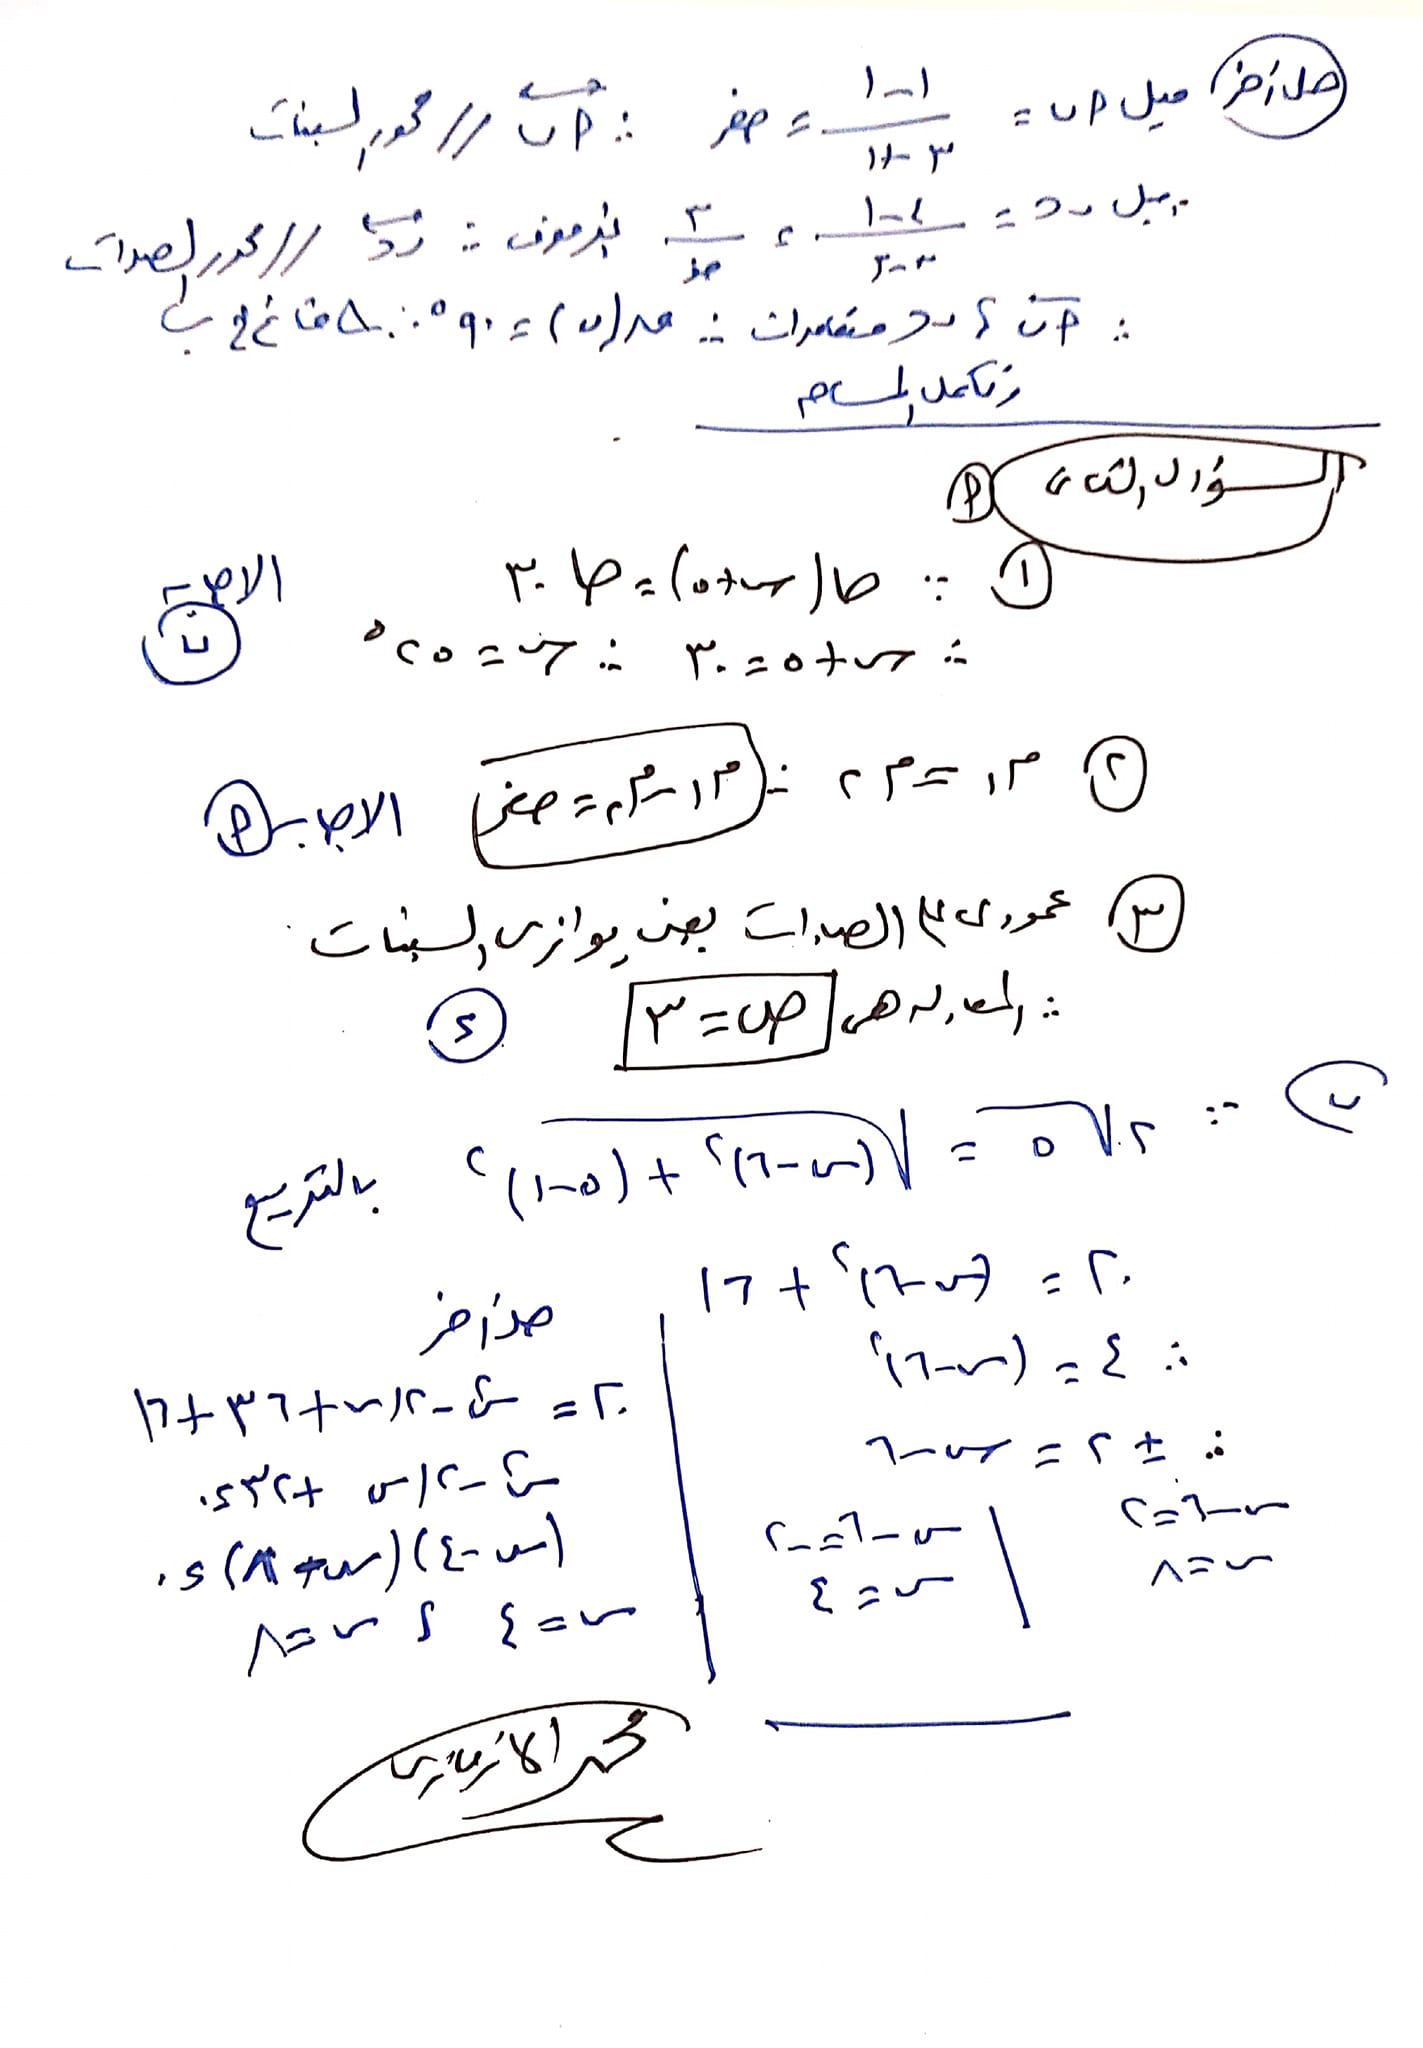 حل آخر ميل ا ب = (١ - ١) / (٣ + ١) = صفر ∴ ا ب // محور السينات
ميل ب ح = (٤ - ١) / (٣ - ٣) = ٣ / صفر غير معرف ∴ ب ح // محور الصادات
∴ ا ب ، ب ح متعامدان ∴ ق(ب) = ٩٠° ∴ △ قائم في ب
ونكمل المساحة
السؤال الثاني ا
١ ∵ طا(س + ٥) = طا ٣٠ الإجابة
∴ س + ٥ = ٣٠ ∴ س = ٢٥° ب
٢ م١ = م٢ ∴ م١ - م٢ = صفر الإجابة ا
٣ عمودي على الصادات يعني يوازي السينات
∴ المعادلة هي ص = ٣ د
ب ∵ ٢√٥ = √((س - ٦)² + (٥ - ١)²) بالتربيع
٢٠ = (س - ٦)² + ١٦
∴ ٤ = (س - ٦)²
∴ ± ٢ = س - ٦
س - ٦ = ٢ | س - ٦ = -٢
س = ٨ | س = ٤
حل آخر
٢٠ = س² - ١٢س + ٣٦ + ١٦
س² - ١٢س + ٣٢ = ٠
(س - ٤)(س - ٨) = ٠
س = ٤ ، س = ٨
محمد